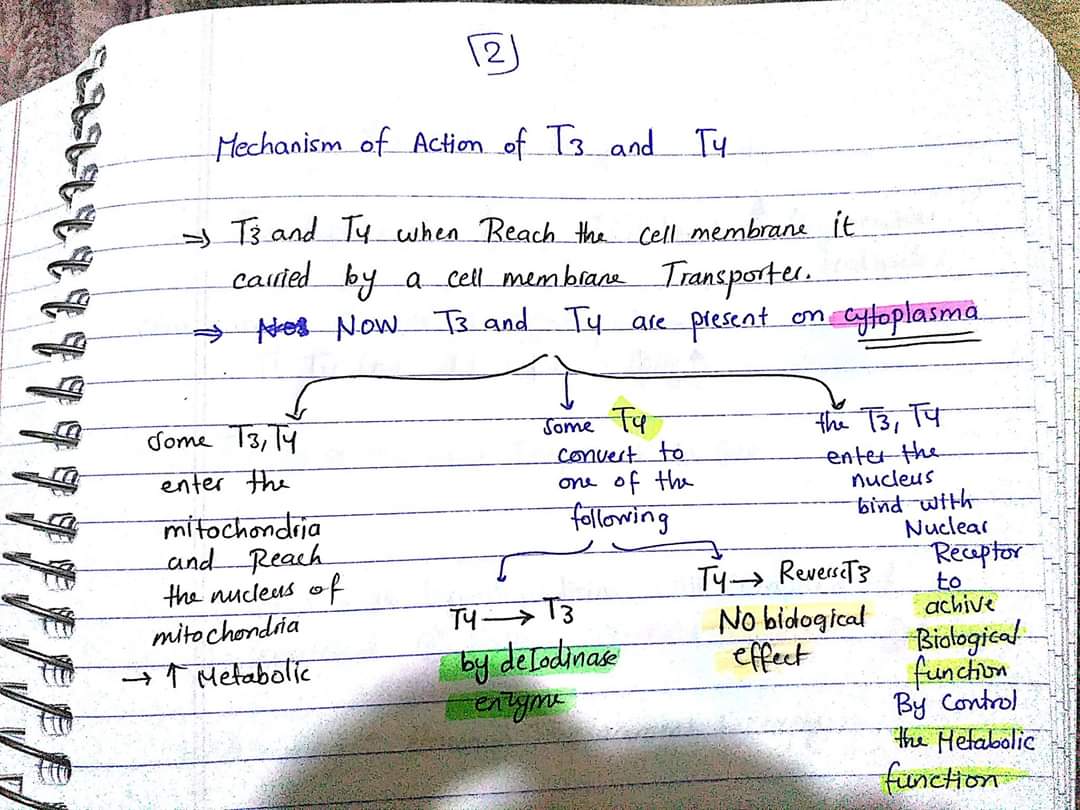 2
Mechanism of Action of T3 and T4
⇒ T3 and T4 when Reach the cell membrane it
carried by a cell membrane Transporter.
⇒ Now T3 and T4 are present on cytoplasma
some T3, T4
enter the
mitochondria
and Reach
the nucleus of
mitochondria
→ ↑ Metabolic
some T4
convert to
one of the
following
T4 → T3
by deIodinase
enzyme
T4 → ReverseT3
No biological
effect
the T3, T4
enter the
nucleus
bind with
Nuclear
Receptor
to
achive
Biological
function
By Control
the Metabolic
function